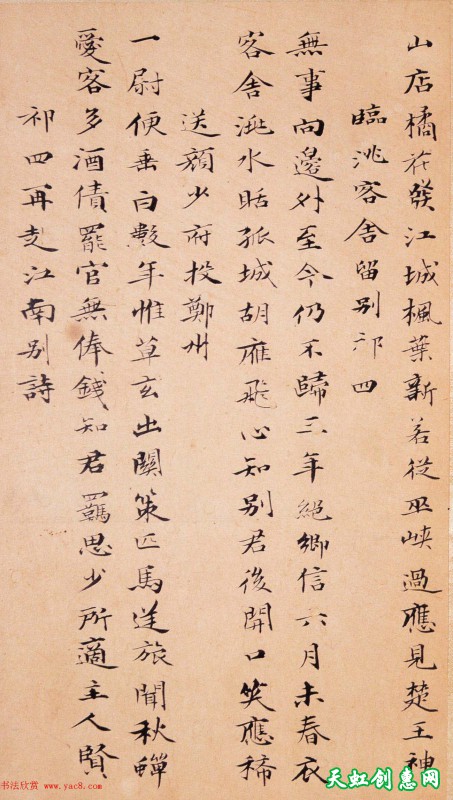 山店橘花發江城楓葉新若從巫峽過應見楚王神
臨洮客舍留别祁四
無事向邊外至今仍不歸三年絕鄉信六月未春衣
客舍洮水聒孤城胡雁飛心知别君後開口笑應稀
送顏少府投鄭州
一尉便垂白數年惟草玄出關策匹馬逆旅聞秋蟬
愛客多酒債罷官無俸錢知君羈思少所適主人賢
祁四再赴江南别詩
书法欣赏 www.yac8.com
天虹创惠网